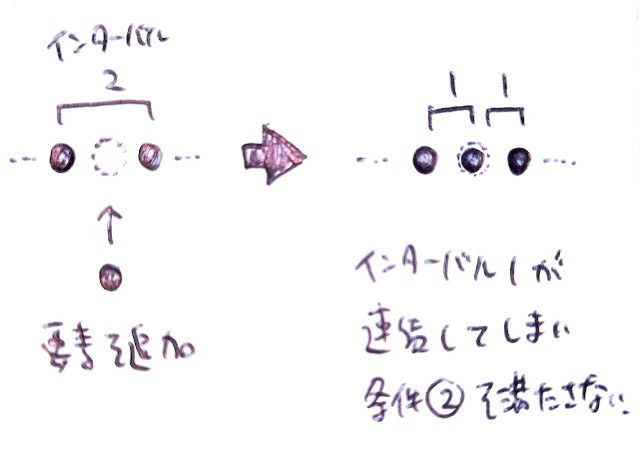 インターバル
2
要素追加
1 1
インターバル1が
連結してしまい
条件②を満たさない